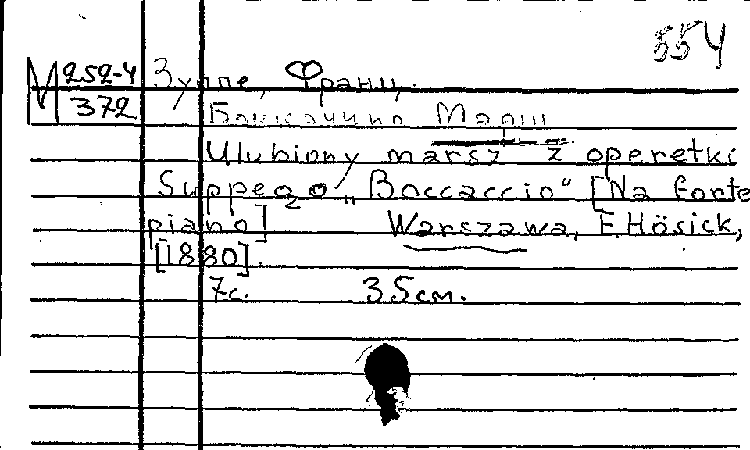 554
М 252-4
372
Зуппе, Франц.
Боккаччио. Марш
Ulubiony marsz z operetki
Suppego „Boccaccio“ [Na forte
piano] Warszawa, F. Hösick,
[1880].
7с. 35см.